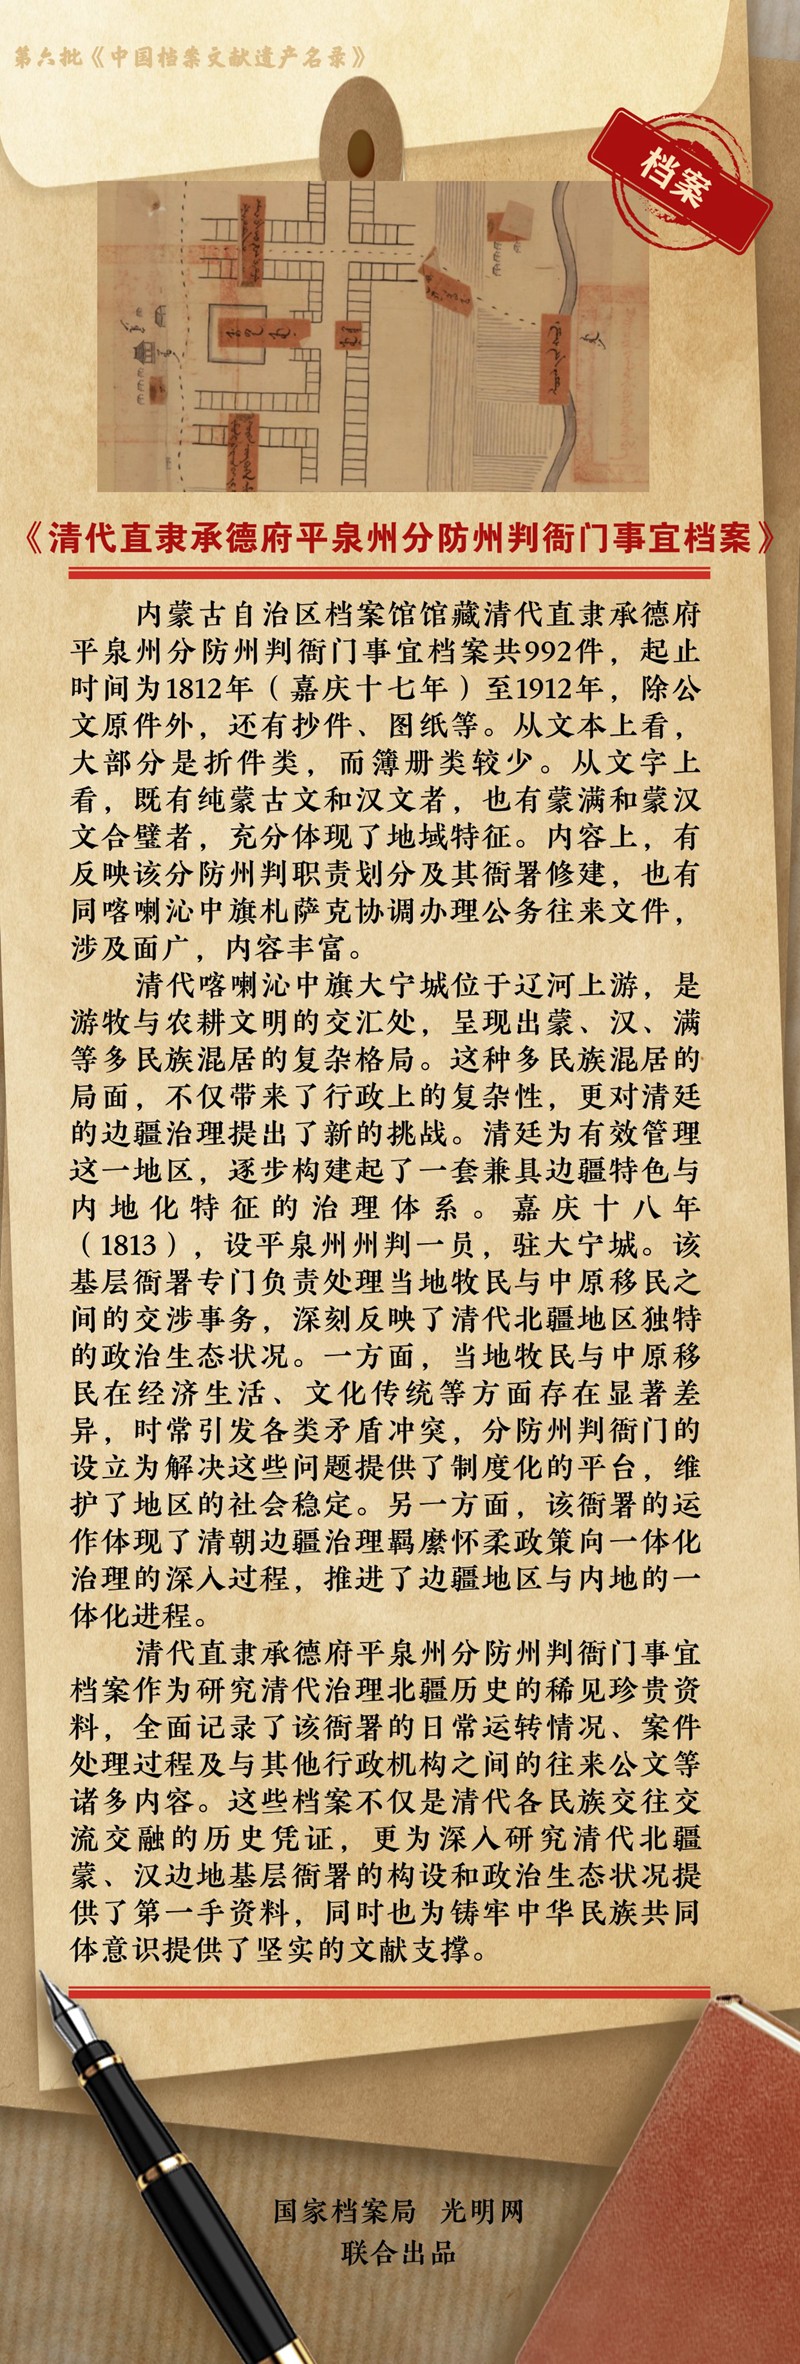 第六批《中国档案文献遗产名录》
档案
《清代直隶承德府平泉州分防州判衙门事宜档案》
内蒙古自治区档案馆馆藏清代直隶承德府
平泉州分防州判衙门事宜档案共992件，起止
时间为1812年（嘉庆十七年）至1912年，除公
文原件外，还有抄件、图纸等。从文本上看，
大部分是折件类，而簿册类较少。从文字上
看，既有纯蒙古文和汉文者，也有蒙满和蒙汉
文合璧者，充分体现了地域特征。内容上，有
反映该分防州判职责划分及其衙署修建，也有
同喀喇沁中旗札萨克协调办理公务往来文件，
涉及面广，内容丰富。
清代喀喇沁中旗大宁城位于辽河上游，是
游牧与农耕文明的交汇处，呈现出蒙、汉、满
等多民族混居的复杂格局。这种多民族混居的
局面，不仅带来了行政上的复杂性，更对清廷
的边疆治理提出了新的挑战。清廷为有效管理
这一地区，逐步构建起了一套兼具边疆特色与
内地化特征的治理体系。嘉庆十八年
（1813），设平泉州州判一员，驻大宁城。该
基层衙署专门负责处理当地牧民与中原移民之
间的交涉事务，深刻反映了清代北疆地区独特
的政治生态状况。一方面，当地牧民与中原移
民在经济生活、文化传统等方面存在显著差
异，时常引发各类矛盾冲突，分防州判衙门的
设立为解决这些问题提供了制度化的平台，维
护了地区的社会稳定。另一方面，该衙署的运
作体现了清朝边疆治理羁縻怀柔政策向一体化
治理的深入过程，推进了边疆地区与内地的一
体化进程。
清代直隶承德府平泉州分防州判衙门事宜
档案作为研究清代治理北疆历史的稀见珍贵资
料，全面记录了该衙署的日常运转情况、案件
处理过程及与其他行政机构之间的往来公文等
诸多内容。这些档案不仅是清代各民族交往交
流交融的历史凭证，更为深入研究清代北疆
蒙、汉边地基层衙署的构设和政治生态状况提
供了第一手资料，同时也为铸牢中华民族共同
体意识提供了坚实的文献支撑。
国家档案局 光明网
联合出品